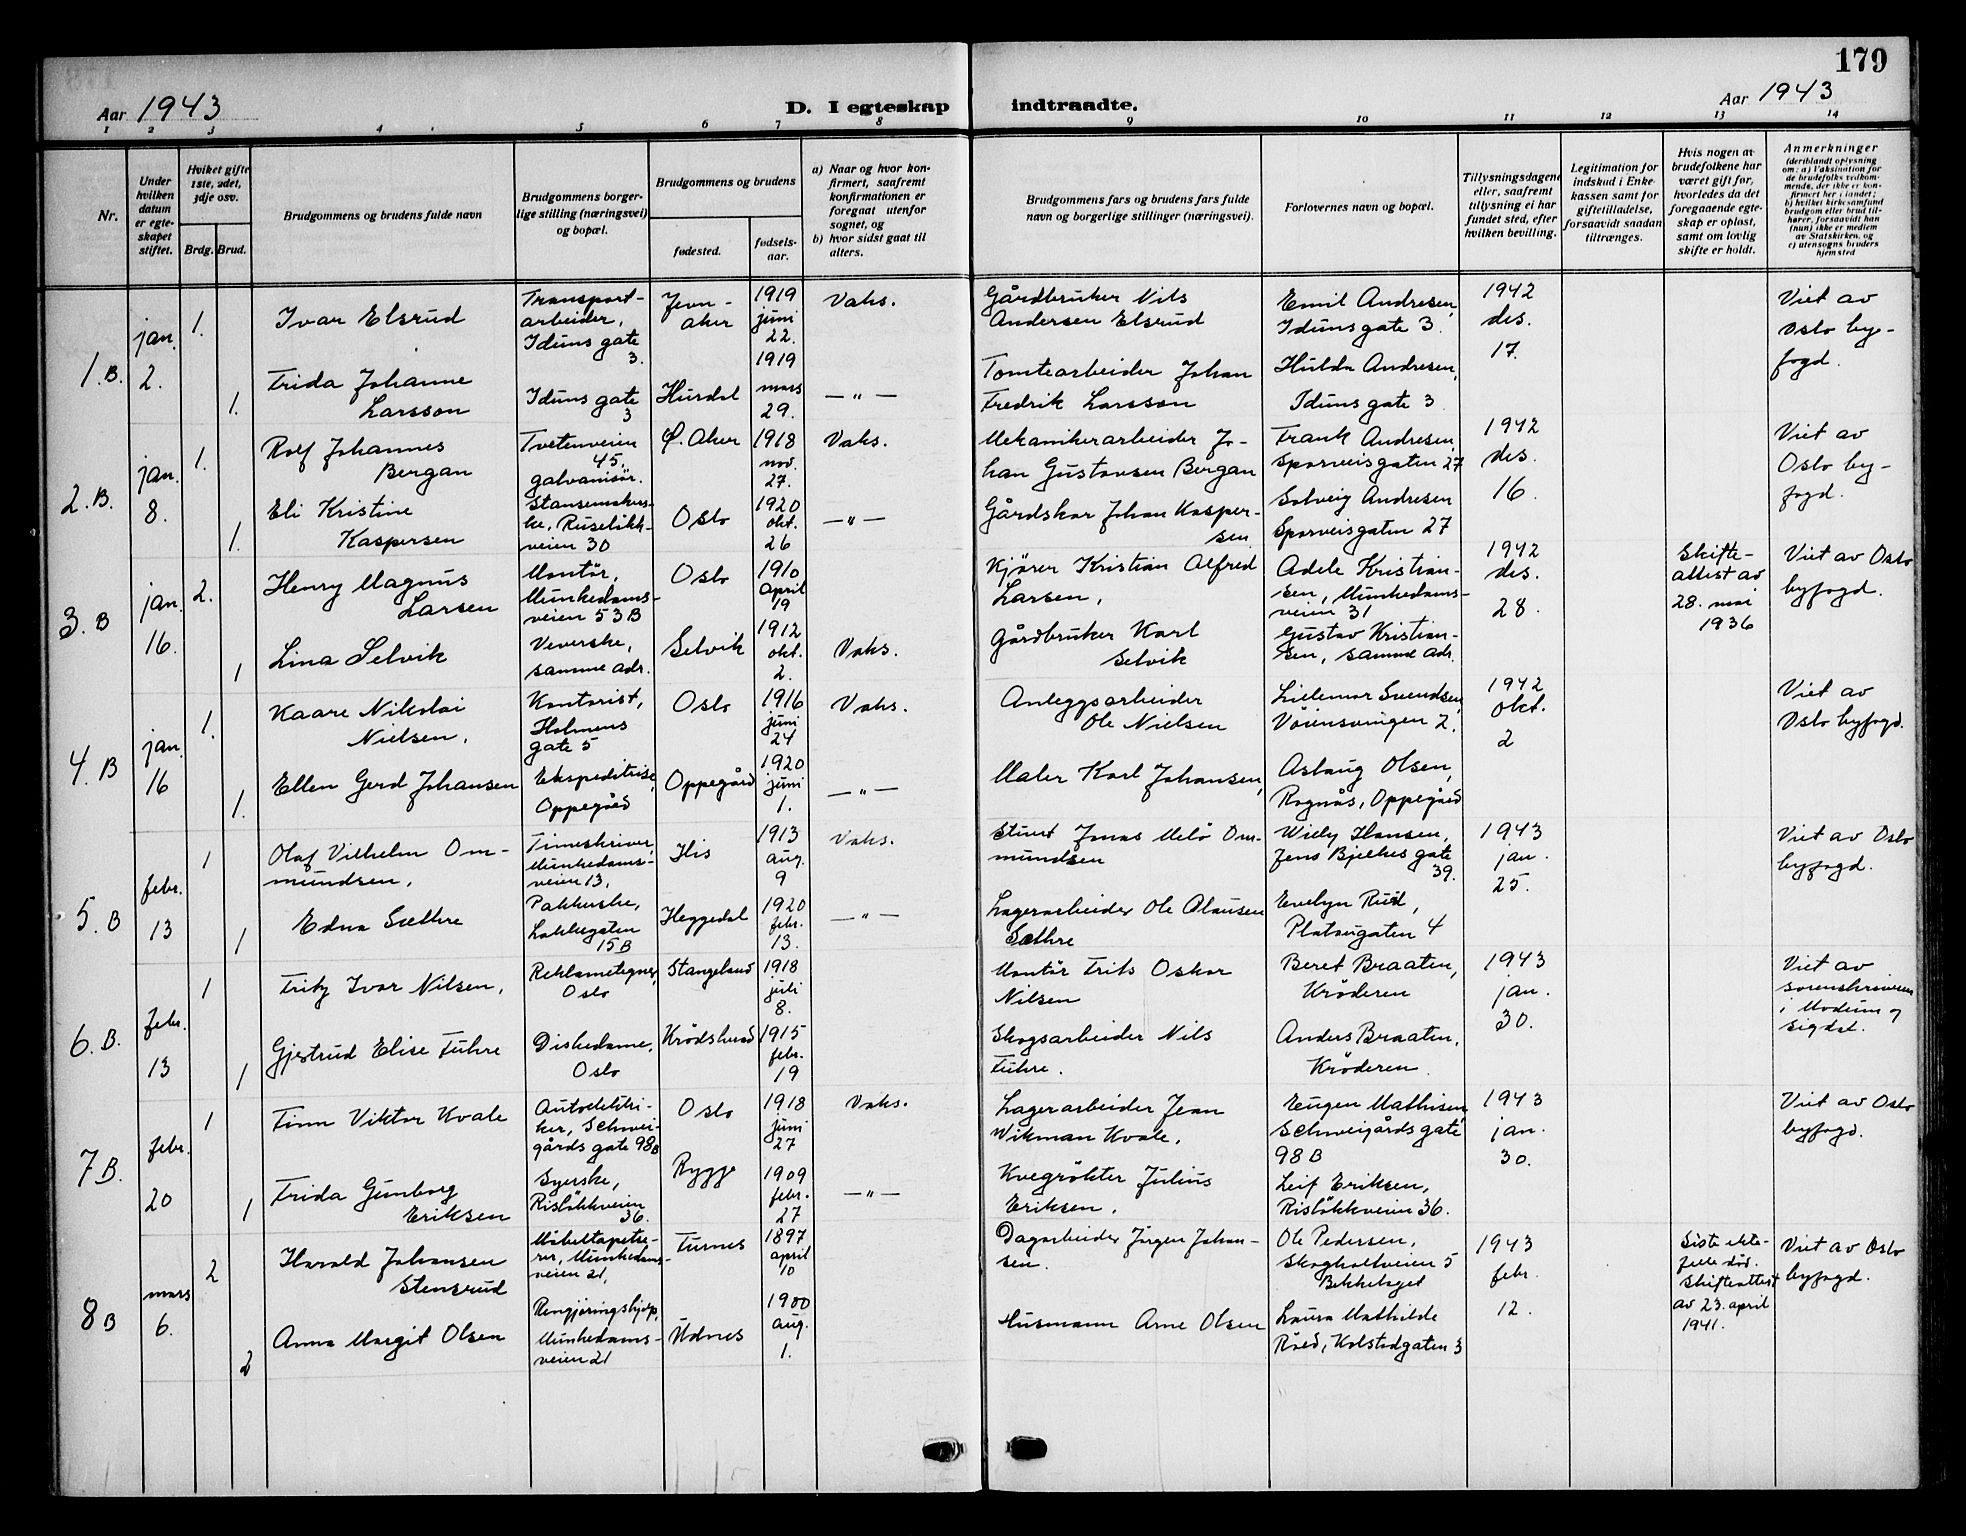 179
Aar 1943
D. I egteskap
indtraadte.
Aar 1943
1 2 3 4 5 6 7 8 9 10 11 12 13 14
Nr.
Under hvilken datum er egteskapet stiftet.
Hvilket gifte 1ste, 2det, 3dje osv.
Brdg. Brud.
Brudgommens og brudens fulde navn
Brudgommens borgerlige stilling (næringsvei) og bopæl.
Brudgommens og brudens
fødested.
fødselsaar.
a) Naar og hvor konfirmert, saafremt konfirmationen er foregaat utenfor sognet, og
b) hvor sidst gaat til alters.
Brudgommens fars og brudens fars fulde navn og borgerlige stillinger (næringsvei).
Forlovernes navn og bopæl.
Tillysningsdagene eller, saafremt tillysning ei har fundet sted, efter hvilken bevilling.
Legitimation for indskud i Enkekassen samt for giftetilladelse, forsaavidt saadan tiltrænges.
Hvis nogen av brudefolkene har været gift før, hvorledes da det foregaaende egteskap er opløst, samt om lovlig skifte er holdt.
Anmerkninger
(deriblandt oplysning om: a) Vaksination for de brudefolks vedkommende, der ikke er konfirmert her i landet; b) hvilket kirkesamfund brudgom eller brud tilhører, forsaavidt han (hun) ikke er medlem av Statskirken, og c) utensogns bruders hjemsted
1.B.
jan. 2.
1.
Ivar Elsrud
Transport-
arbeider,
Iduns gate
3.
Jevn-
aker
1919
juni
22.
Vaks.
Gårdbruker Nils
Andersen Elsrud
Emil Andresen,
Iduns gate 3.
1942
des.
17.
Viet av
Oslo by-
fogd.
1.
Frida Johanne
Larsson
Iduns gate
3
Hurdal
1919
mars
29.
— " —
Tomtearbeider Johan
Fredrik Larsson
Hulda Andresen,
Iduns gate 3.
2.B.
jan. 8.
1.
Rolf Johannes
Bergan
Tvetenveien
45
galvanisør.
Ø. Aker
1918
nov.
27.
Vaks.
Mekanikerarbeider Jo-
han Gustavsen Bergan
Frank Andresen,
Sporveisgaten 27
1942
des.
16.
Viet av
Oslo by-
fogd.
1.
Eli Kristine
Kaspersen
ke, Ruseløkk-
veien 30
Oslo
1920
okt.
26
— " —
Gårdskar Johan Kasper-
sen
Solveig Andresen
Sporveisgaten 27
3.B
jan. 16.
2.
Henry Magnus
Larsen
Montør,
Munkedams-
veien 53 B
Oslo
1910
april
19
Kjører Kristian Alfred
Larsen,
Adele Kristian-
sen, Munkedams-
veien 31
1942
des.
28.
Skifte-
attest av
28. mai
1936
Viet av Oslo
byfogd.
1
Lina Selvik
Veverske,
samme adr.
Selvik
1912
okt.
2.
Vaks.
Gårdbruker Karl
Selvik
Gustav Kristian-
sen, samme adr.
4.B
jan. 16
1.
Kaare Nikolai
Nielsen,
Kontorist,
Holmens
gate 5
Oslo
1916
juni
24
Vaks.
Anleggsarbeider
Ole Nielsen
Lillemor Svendsen,
Vøiensvingen 2.
1942
okt.
2
Viet av
Oslo byfogd.
1.
Ellen Gerd Johansen
Ekspeditrise,
Oppegård
Oppegård
1920
juni
1.
— " —
Maler Karl Johansen,
Aslaug Olsen,
Rognås, Oppegård
5.B
febr. 13
1
Olaf Vilhelm Om-
mundsen,
Timeskriver,
Munkedams-
veien 13,
His
1913
aug.
9
Vaks.
Stuert Jonas Om-
mundsen
Willy Hansen,
Jens Bjelkes gate
39.
1943
jan.
25.
Viet av Oslo
byfogd.
1
Edna Sæthre
Pakkerske,
Lakkegaten
15 B
Heggedal
1920
febr.
13.
— " —
Lagerarbeider Ole Clausen
Sæthre
Evelyn Ruud,
Platougaten 4
6.B.
febr. 13
1
Fritz Ivar Nilsen,
Reklametegner,
Oslo
Stangeland
1918
juli
8.
Montør Frits Oskar
Nilsen
Beret Braaten,
Krøderen
1943
jan.
30.
Viet av
sorenskriveren
i Modum og
Sigdal.
1
Gjertrud Elise Fuhre
Diskedame,
Oslo
Krødsherad
1915
febr.
19
Skogsarbeider Nils
Fuhre.
Anders Braaten,
Krøderen.
7B.
febr. 20
1
Finn Viktor Kvale
Autoelektri-
ker, Schwei-
gårds gate 98B
Oslo
1918
juni
27
Vaks.
Lagerarbeider Jean
Wikman Kvale.
Eugen Mathisen,
Schweigårds gate
98 B
1943
jan.
30.
Viet av Oslo
byfogd.
1
Frida Gunborg
Eriksen
Syerske,
Risløkkveien
36.
Rygge
1909
febr.
27
— " —
Kvegrøkter Julius
Eriksen.
Leif Eriksen,
Risløkkveien 36.
8B
mars 6.
2
Harald Johansen
Stensrud
Møbeltapetse-
rer, Munkedams-
veien 21,
Furnes
1897
april
10
Dagarbeider Jørgen Johan-
sen.
Ole Pedersen,
Skogholtveien 5
Bekkelaget
1943
febr.
12.
Siste ekte-
felle død.
Skifteattest
av 23. april
1941.
Viet av Oslo
byfogd.
2
Anna Margit Olsen
Rengjøringshjelp,
Munkedams-
veien 21
Udnes
1900
aug.
1.
Husmann Arne Olsen
Laura Mathilde
Røed, Kolstadgaten 3